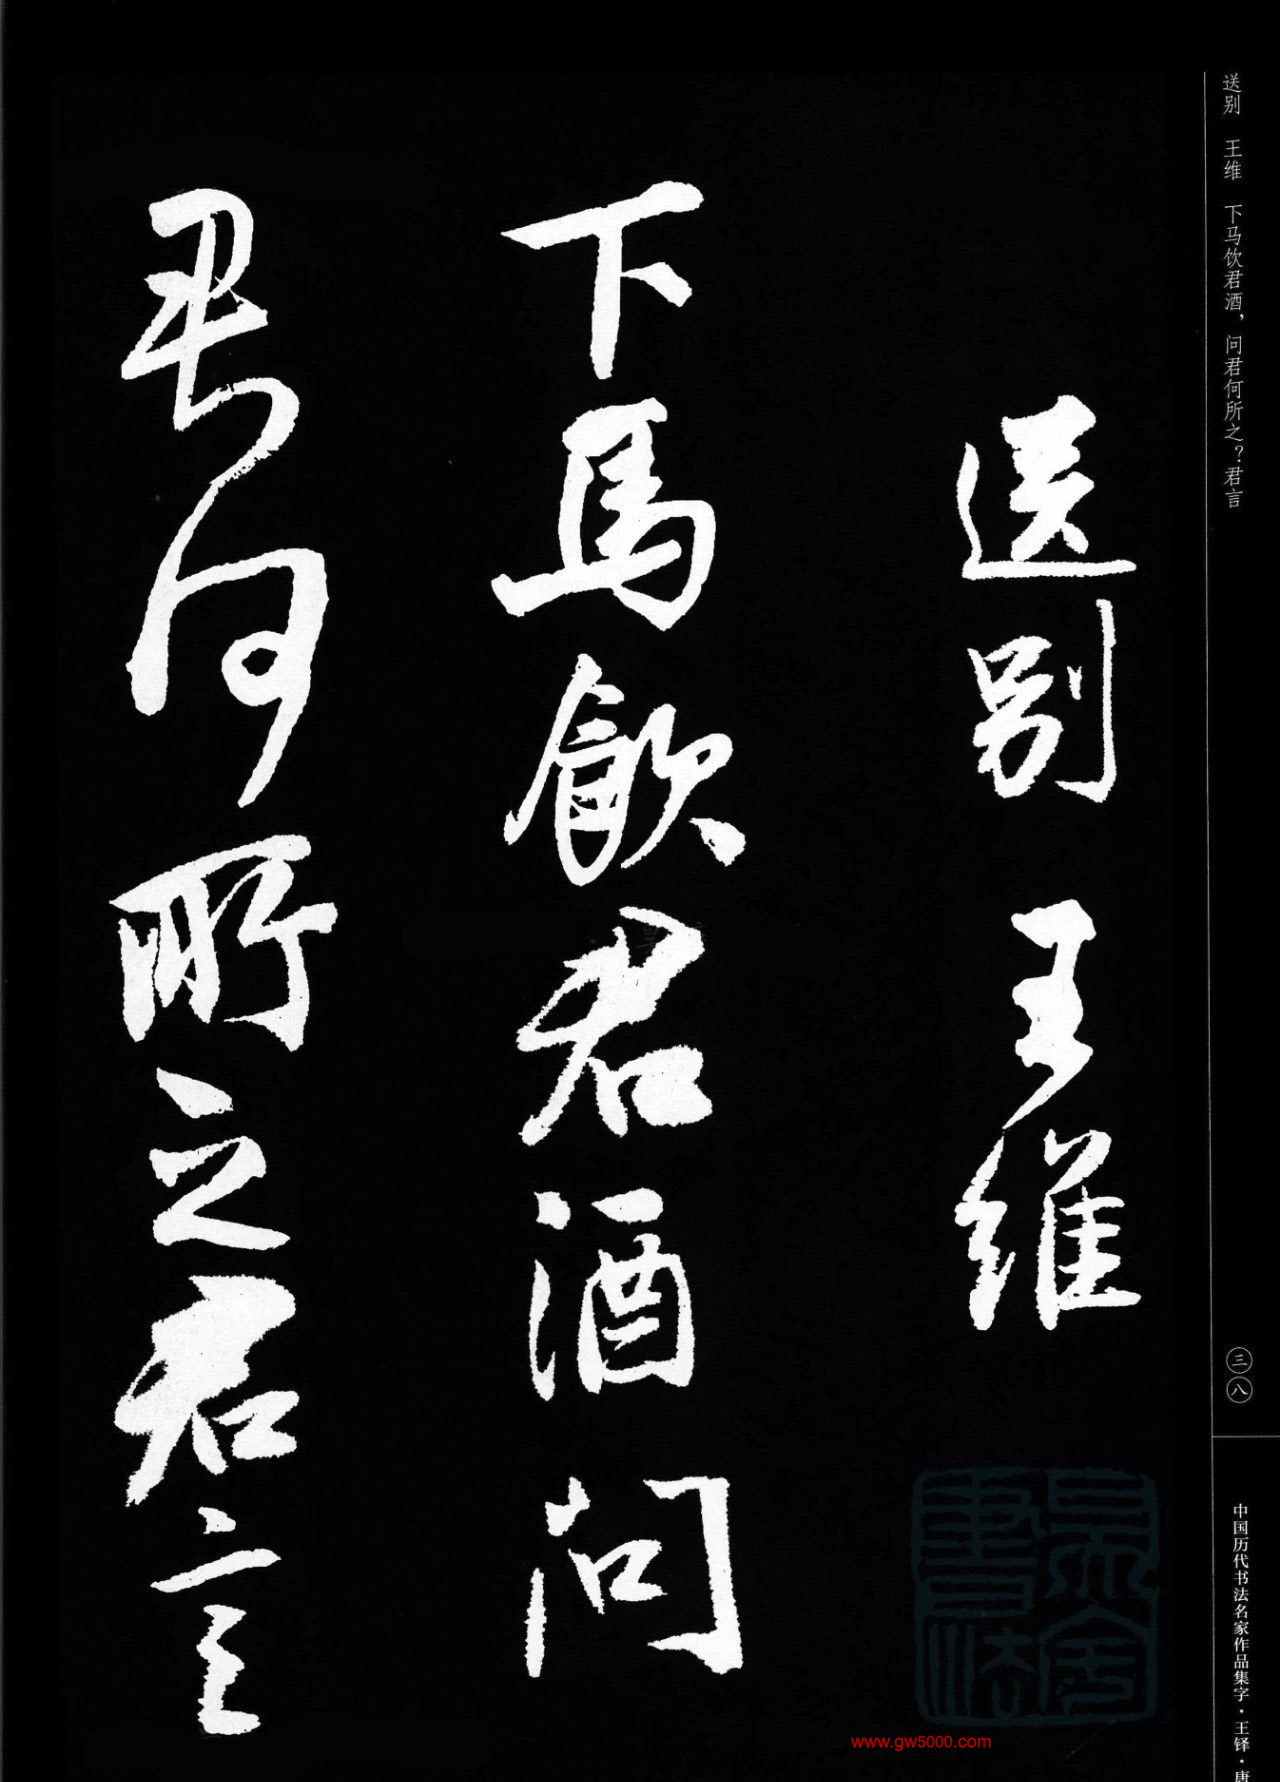 送别 王维 下马饮君酒，问君何所之？君言
送别 王維
下馬飲君酒問
君何所之君言
三八
中国历代书法名家作品集字·王铎·唐
www.gw5000.com